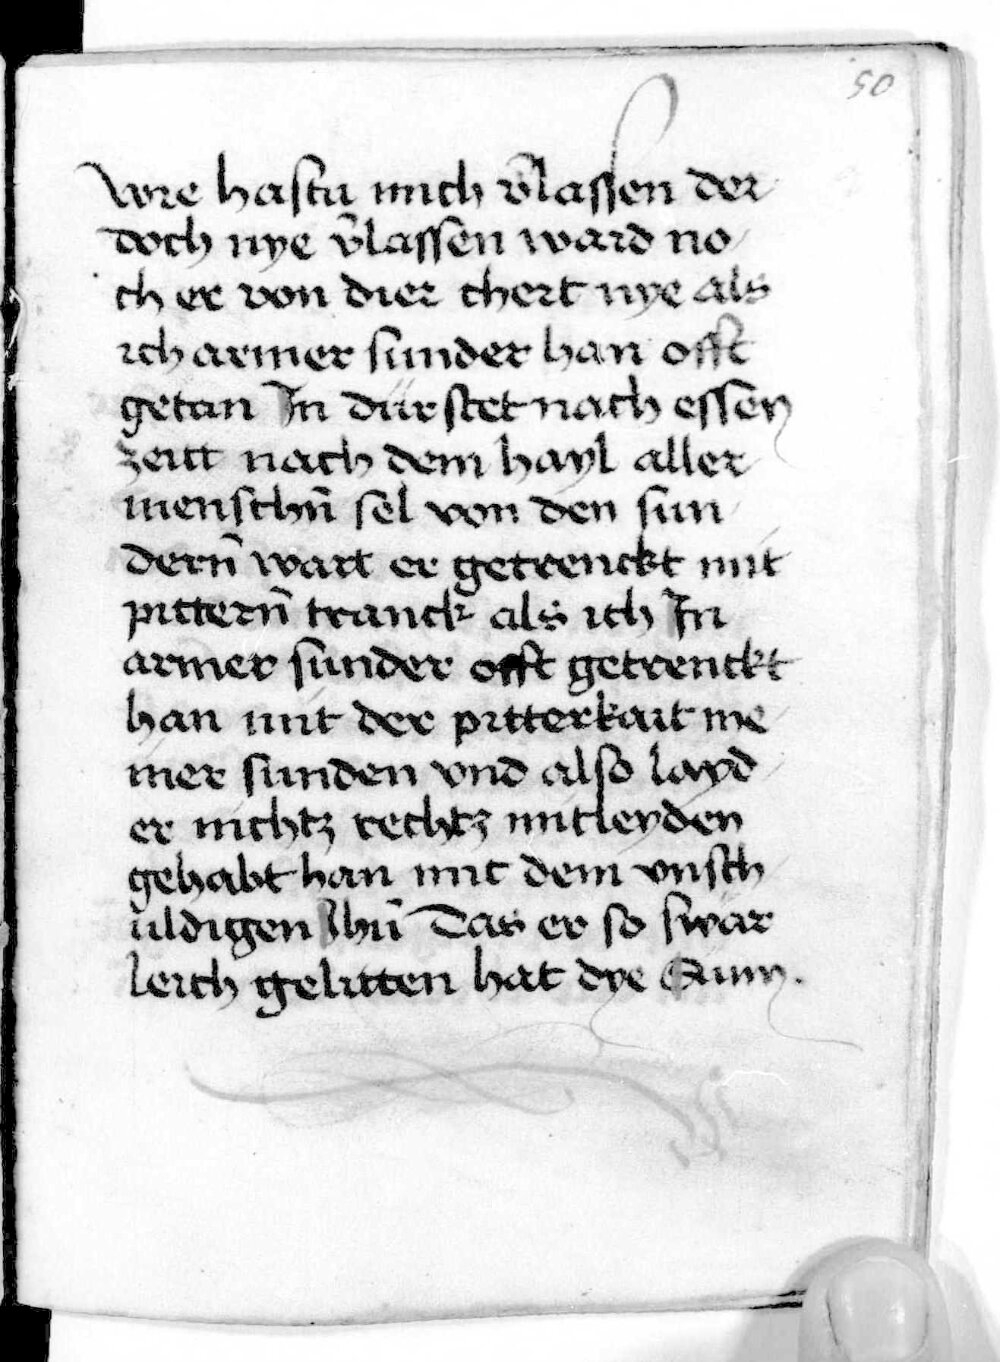 50
wie hastu mich v̄lassen der
doch nye v̄lassen ward no
ch er von dier chert nye als
ich armer sunder han offt
getan In dürstet nach essen
zeitt nach dem hayl aller
menschn̄ sel von den sun
dern̄ wart er getrenckt mit
pittern̄ tranck als ich In
armer sunder offt getrenckt
han mit der pitterkait me
iner sunden vnd also layd
er nichtz rechtz mitleyden
gehabt han mit dem vnsch
uldigen Ihū Das er so swär
leich gelitten hat dye